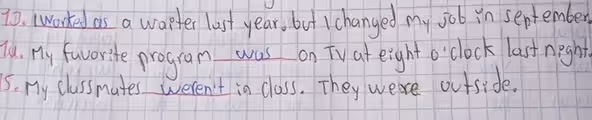 13. I worked as a waiter last year, but I changed my job in september.
14. My fuvorite program was on TV at eight o'clock last neght.
15. My clussmates weren't in class. They were outside.